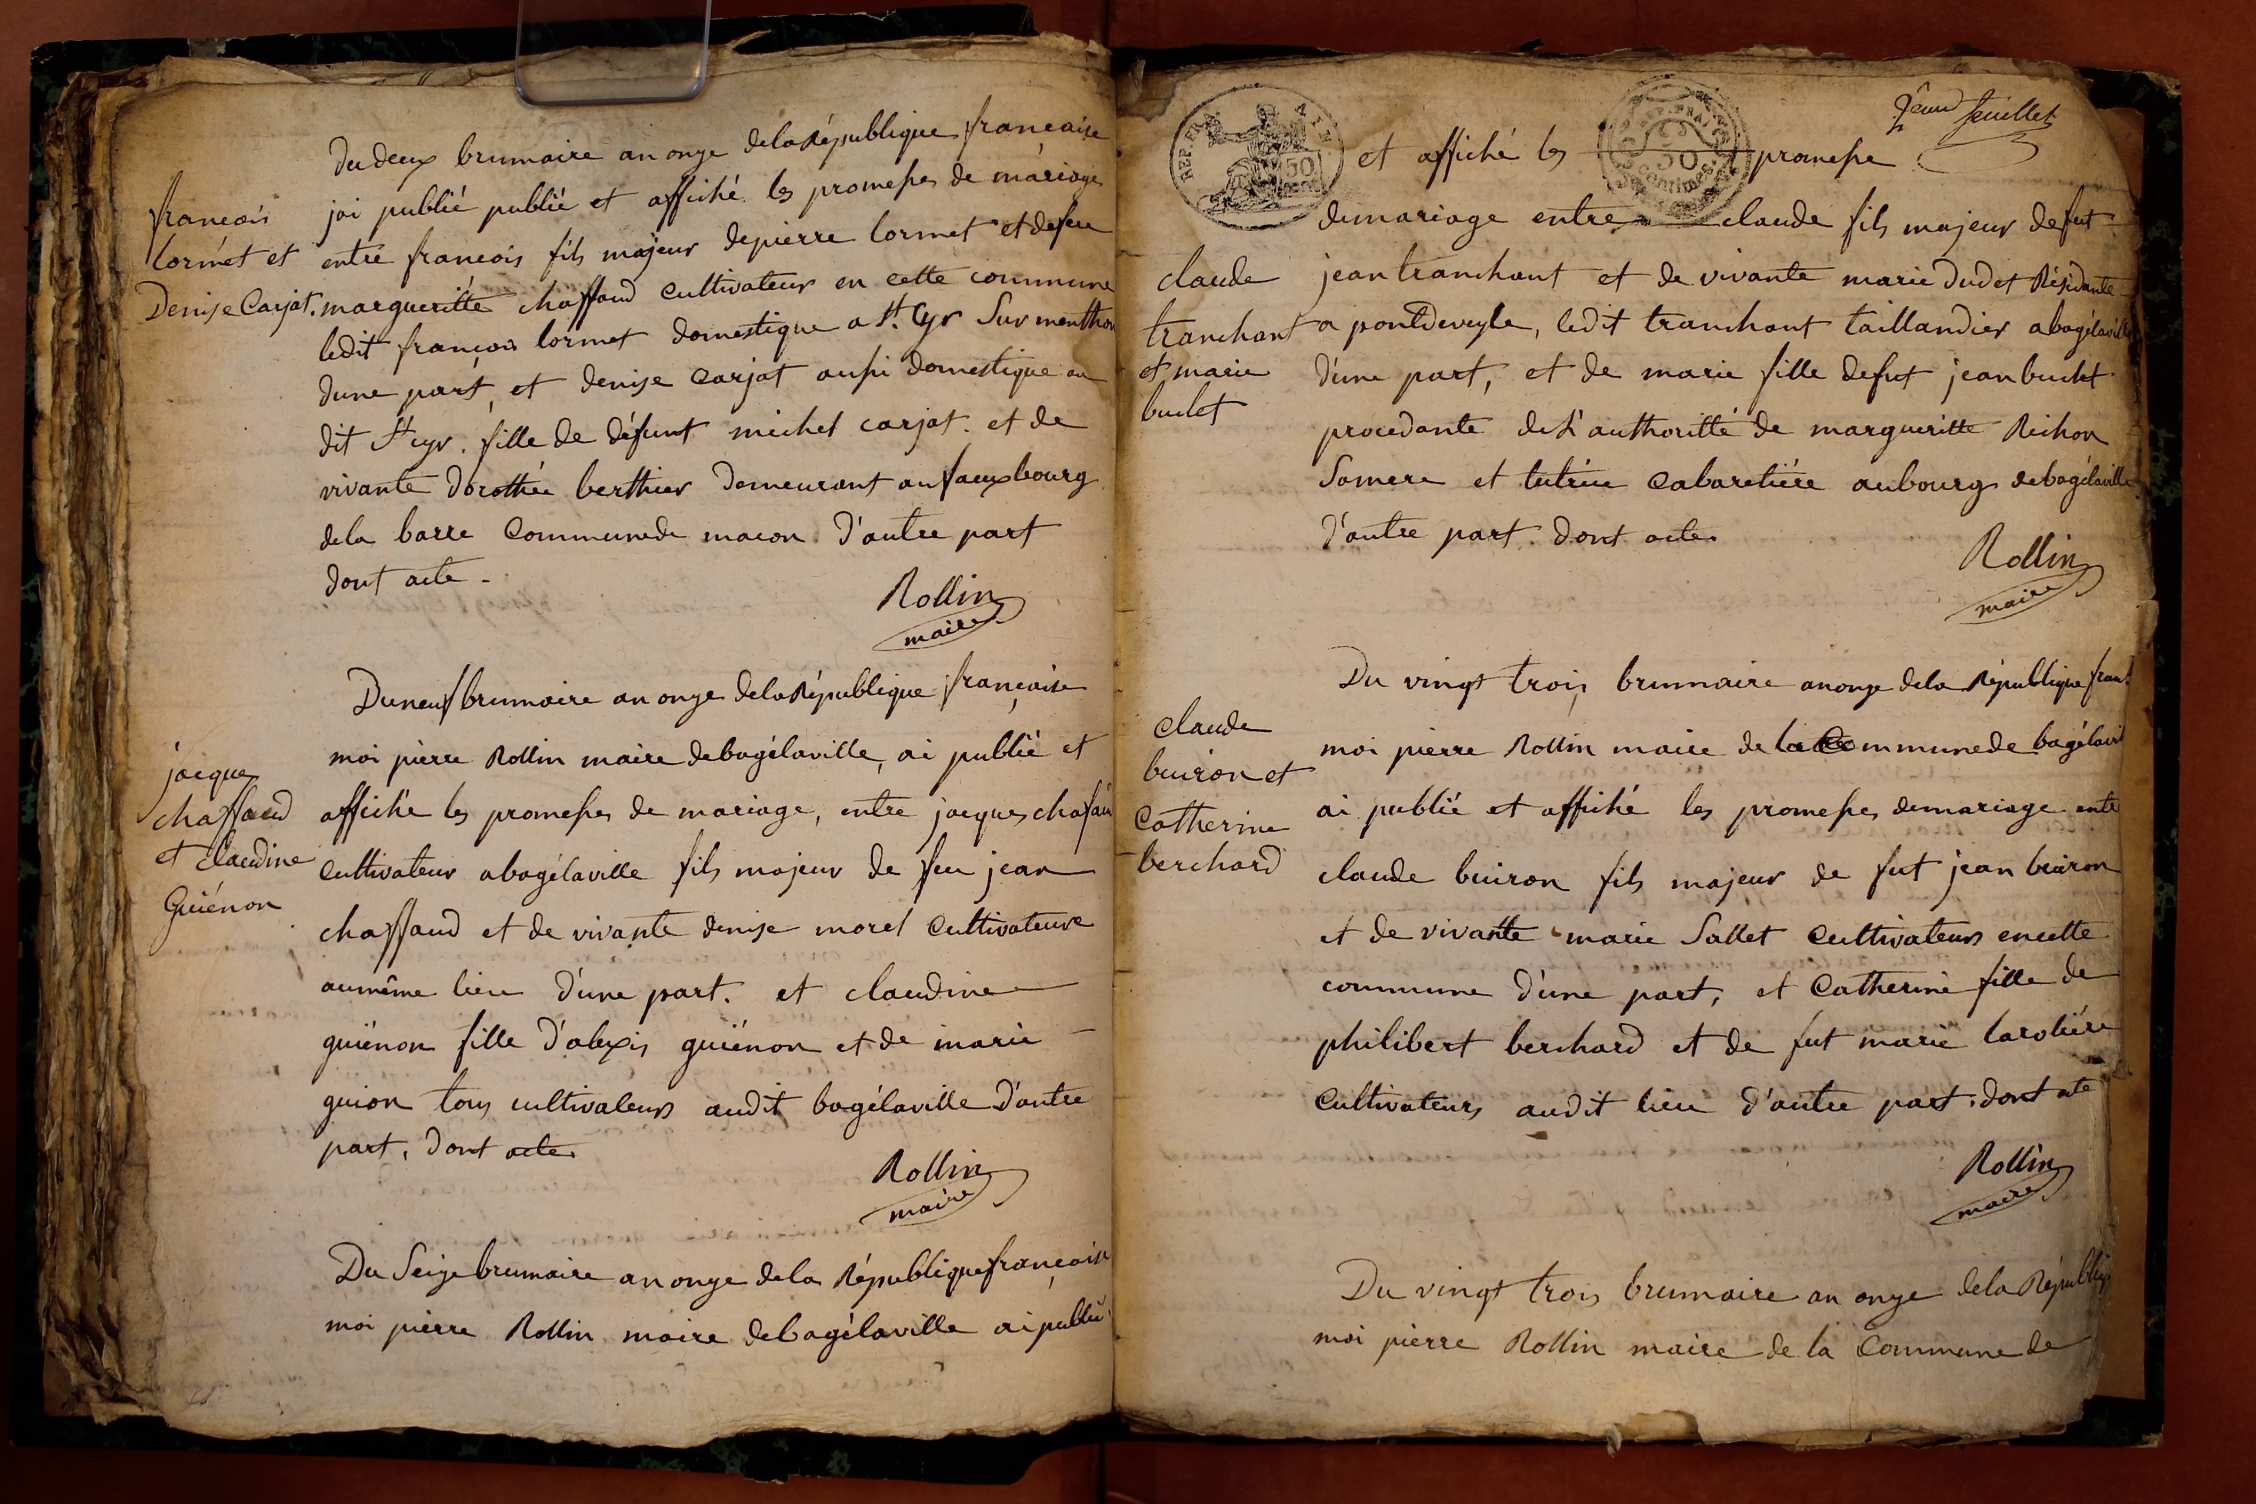 françois
lormet et
Denise Carjat.
Du deux brumaire an onze de la République française
jai publié publié et affiché les promesses de mariage
entre françois fils majeur de pierre lormet et de feu
margueritte chaffaud cultivateur en cette commune
ledit françois lormet domestique a St. Cyr Sur menthon
dune part, et denise carjat aussi domestique au
dit St cyr. fille de défunt michel carjat. et de
vivante dorothée berthier demeurant au fauxbourg
de la barre commune de macon d'autre part
dont acte -
Rollin
maire
jacques
chaffaud
et claudine
Guiénon
Du neuf brumaire an onze de la République française
moi pierre Rollin maire de bagélaville, ai publié et
affiché les promesses de mariage, entre jacques chafaud
cultivateur a bagélaville fils majeur de feu jean
chaffaud et de vivante denise morel cultivateure
au même lieu d'une part. et claudine
guiénon fille d'alexis guiénon et de marie
guion tous cultivateurs audit bagélaville d'autre
part, dont acte.
Rollin
maire
Du Seize brumaire an onze de la République française
moi pierre Rollin maire de bagélaville ai publié
REP. FRA
AIN
50
REP. FRA
50
centimes
feuillet
et affiché les promesse
claude
tranchant
et marie
buclet
de mariage entre claude fils majeur de fut
jean tranchant et de vivante marie dudet Résidante
a pontdeveyle, ledit tranchant taillandier a bagélaville
d'une part, et de marie fille de fut jean buclet
procedante de l'authoritté de margueritte Richon
Sa mere et tutrice cabaretière au bourg de bagélaville
d'autre part. dont acte.
Rollin
maire
claude
buiron et
Catherine
berchard
Du vingt trois brumaire an onze de la République fran.
moi pierre Rollin maire de la Commune de bagélavil
ai publié et affiché les promesses de mariage entre
claude buiron fils majeur de fut jean buiron
et de vivante marie Sallet cultivateurs en cette
commune d'une part, et Catherine fille de
philibert berchard et de fut marie laroliére
cultivateurs audit lieu d'autre part, dont acte
Rollin
maire
Du vingt trois brumaire an onze de la Républiq
moi pierre Rollin maire de la Commune de